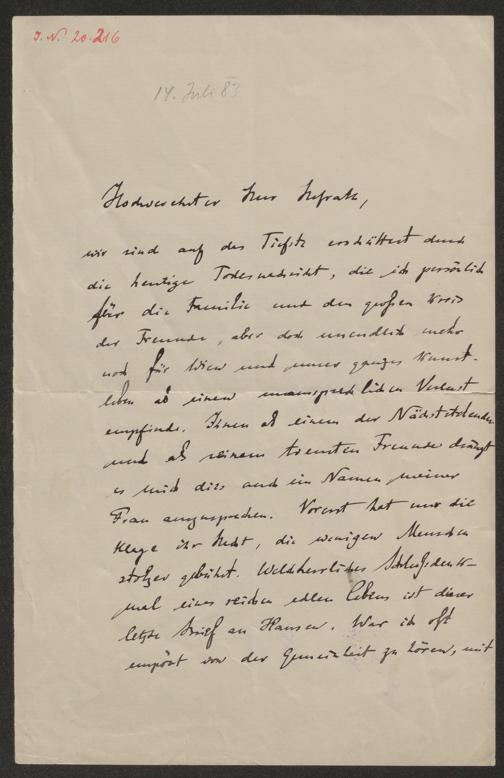 J. N. 20.216
14. Juli 83
Hochverehrter Herr Hofrath,
wir sind auf das Tiefste erschüttert durch
die heutige Todesnachricht, die ich persönlich
für die Familie und den großen Kreis
der Freunde, aber doch unendlich mehr
noch für Wien und unser ganzes Kunst-
leben als einen unaussprechlichen Verlust
empfinde. Ihnen als einem der Nächststehenden
und als seinem treuesten Freunde drängt
es mich dies auch im Namen meiner
Frau auszusprechen. Vorerst hat nur die
Klage ihr Recht, die wenigen Menschen
stolzer gebührt. Welch herrliches Schlußdenk-
mal eines reichen edlen Lebens ist dieser
letzte Brief an Hansen. War ich oft
empört von der Gemeinheit zu hören, mit